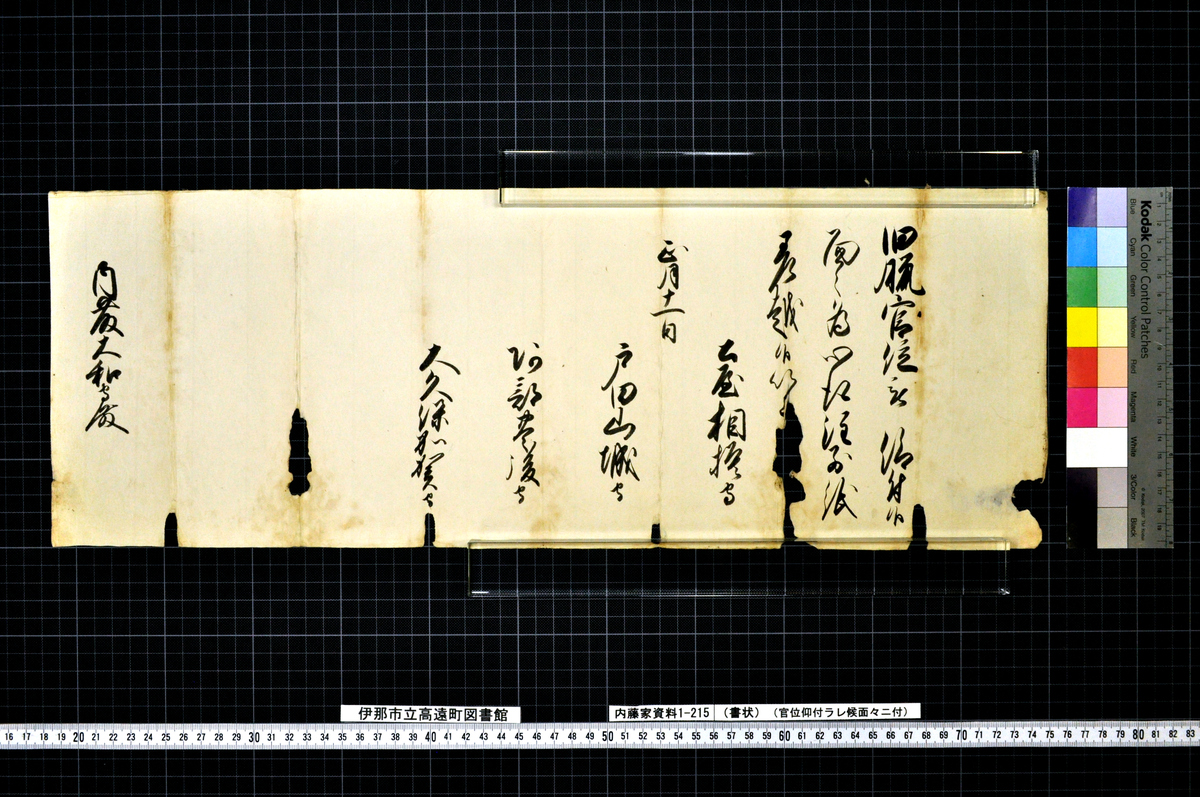 旧臘官位被 仰付候
面々為御心得注別紙
差越候以上
正月十一日
土屋相模守
戸田山城守
阿部豊後守
大久保加賀守
内藤大和守殿
Kodak Color Control Patches
Blue
Cyan
Green
Yellow
Red
Magenta
White
3/Color
Black
伊那市立高遠町図書館
内藤家資料1-215 (書状) (官位仰付ラレ候面々ニ付)
16 17 18 19 20 21 22 23 24 25 26 27 28 29 30 31 32 33 34 35 36 37 38 39 40 41 42 43 44 45 46 47 48 49 50 51 52 53 54 55 56 57 58 59 60 61 62 63 64 65 66 67 68 69 70 71 72 73 74 75 76 77 78 79 80 81 82 83